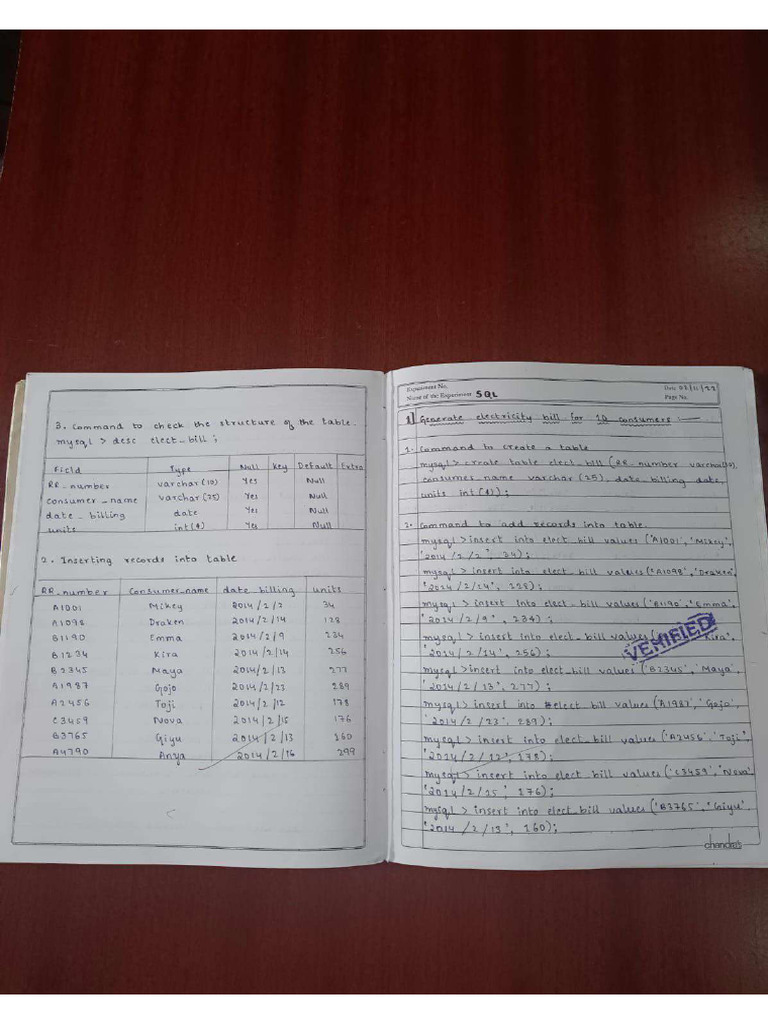 3. Command to check the structure of the table.
mysql > desc elect_bill ;
Field Type Null Key Default Extra
RR_number varchar(10) Yes Null
consumer_name varchar(25) Yes Null
date_billing date Yes Null
units int(4) Yes Null
2. Inserting records into table
RR_number Consumer_name date_billing units
A1001 Mikey 2014/2/2 34
A1098 Draken 2014/2/14 128
B1190 Emma 2014/2/9 234
B1234 Kira 2014/2/14 256
B2345 Maya 2014/2/13 277
A1987 Gojo 2014/2/23 289
A2456 Toji 2014/2/12 178
C3459 Nova 2014/2/15 176
B3765 Giyu 2014/2/13 160
A4790 Anya 2014/2/16 299
Experiment No. Date
Name of the Experiment SQL Page No.
1] Generate electricity bill for 10 consumers :—
1. Command to create a table
mysql > create table elect_bill (RR_number varchar(10),
consumer_name varchar (25), date_billing date,
units int(4));
2. Command to add records into table.
mysql > insert into elect_bill values ('A1001','Mikey',
'2014/2/2', 34);
mysql > insert into elect_bill values ('A1098','Draken',
'2014/2/14', 128);
mysql > insert into elect_bill values ('B1190','Emma',
'2014/2/9', 234);
mysql > insert into elect_bill values Kira',
'2014/2/14', 256);
VERIFIED
mysql > insert into elect_bill values ('B2345','Maya',
'2014/2/13', 277);
mysql > insert into elect_bill values (A1987','Gojo',
'2014/2/23', 289);
mysql > insert into elect_bill values ('A2456','Toji',
'2014/2/12', 178);
mysql > insert into elect_bill values ('C3459','Nova',
'2014/2/15', 176);
mysql > insert into elect_bill values ('B3765','Giyu',
'2014/2/13', 160);
chandra's